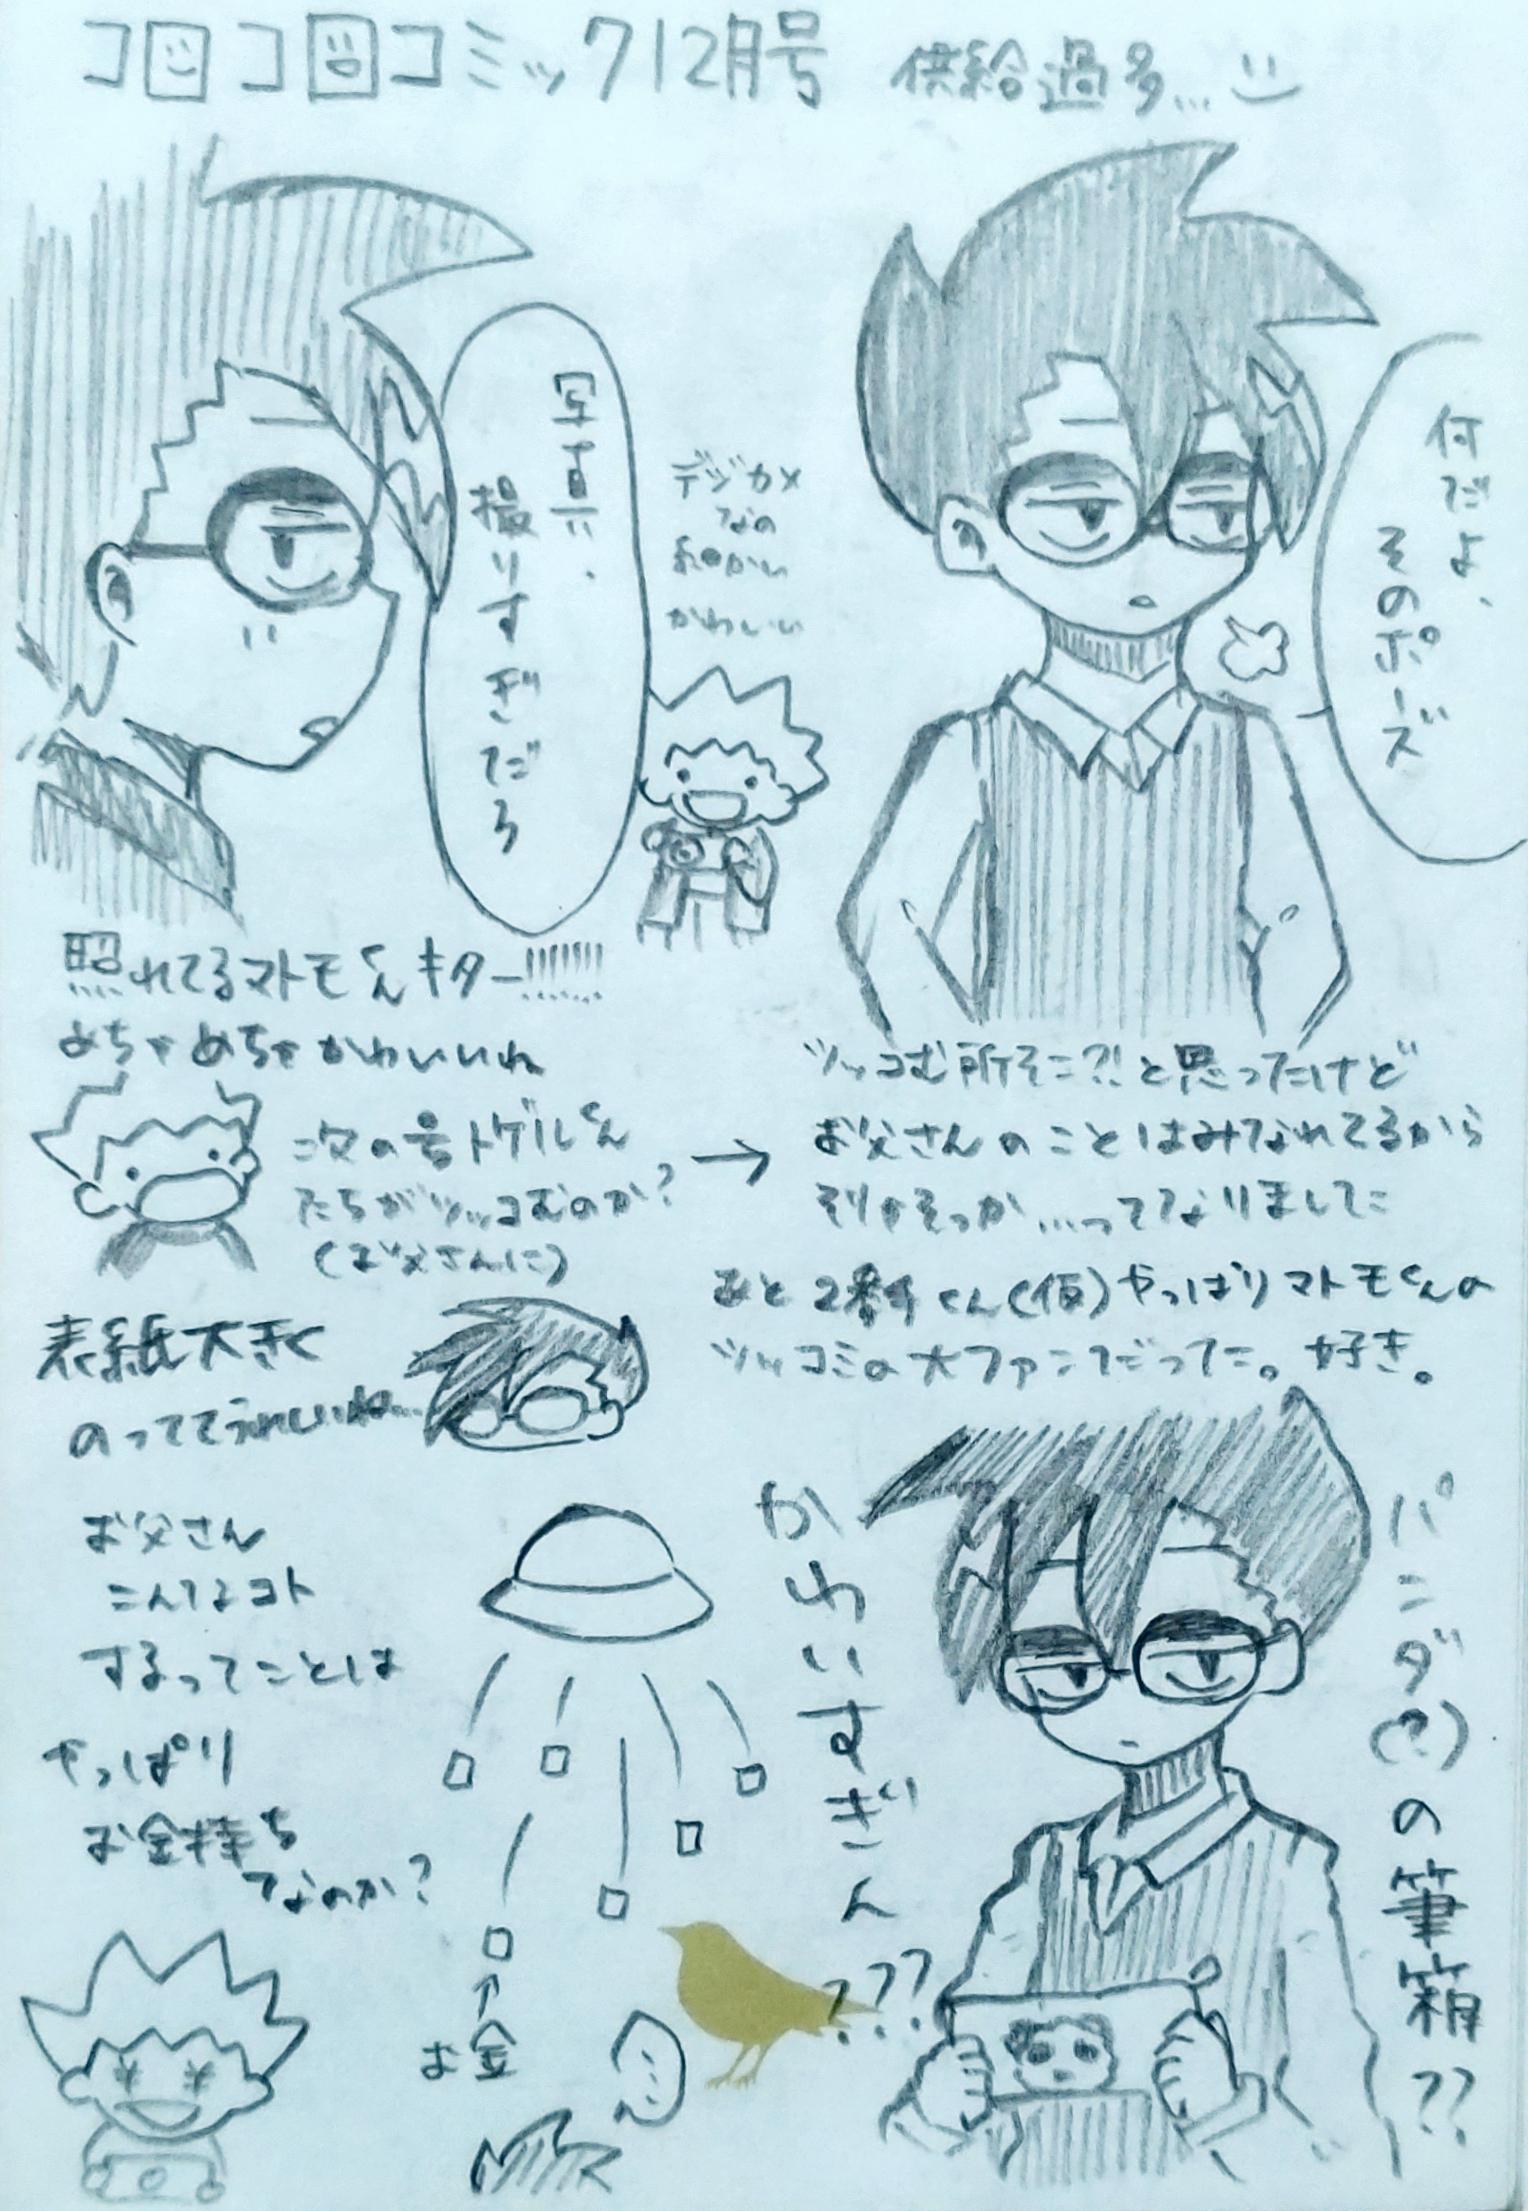 コロコロコミック12月号 供給過多…
写真、
撮りすぎだろ
デジカメ
なの
かわいい
何だよ、
そのポーズ
照れてるマトモくんキター!!!!!!!
めちゃめちゃかわいいね
次の号トゲルくん
たちがツッコむのか?
(お父さんに)
→
ツッコむ所そこ?!と思ったけど
お父さんのことはみなれてるから
そりゃそっか…ってなりました
あと2番手くん(仮)やっぱりマトモくんの
ツッコミの大ファンだった。好き。
表紙大きく
のっててうれしいね…
お父さん
こんなコト
するってことは
やっぱり
お金持ち
なのか?
↑
お金
パンダ(?)の筆箱??
かわいすぎん
???